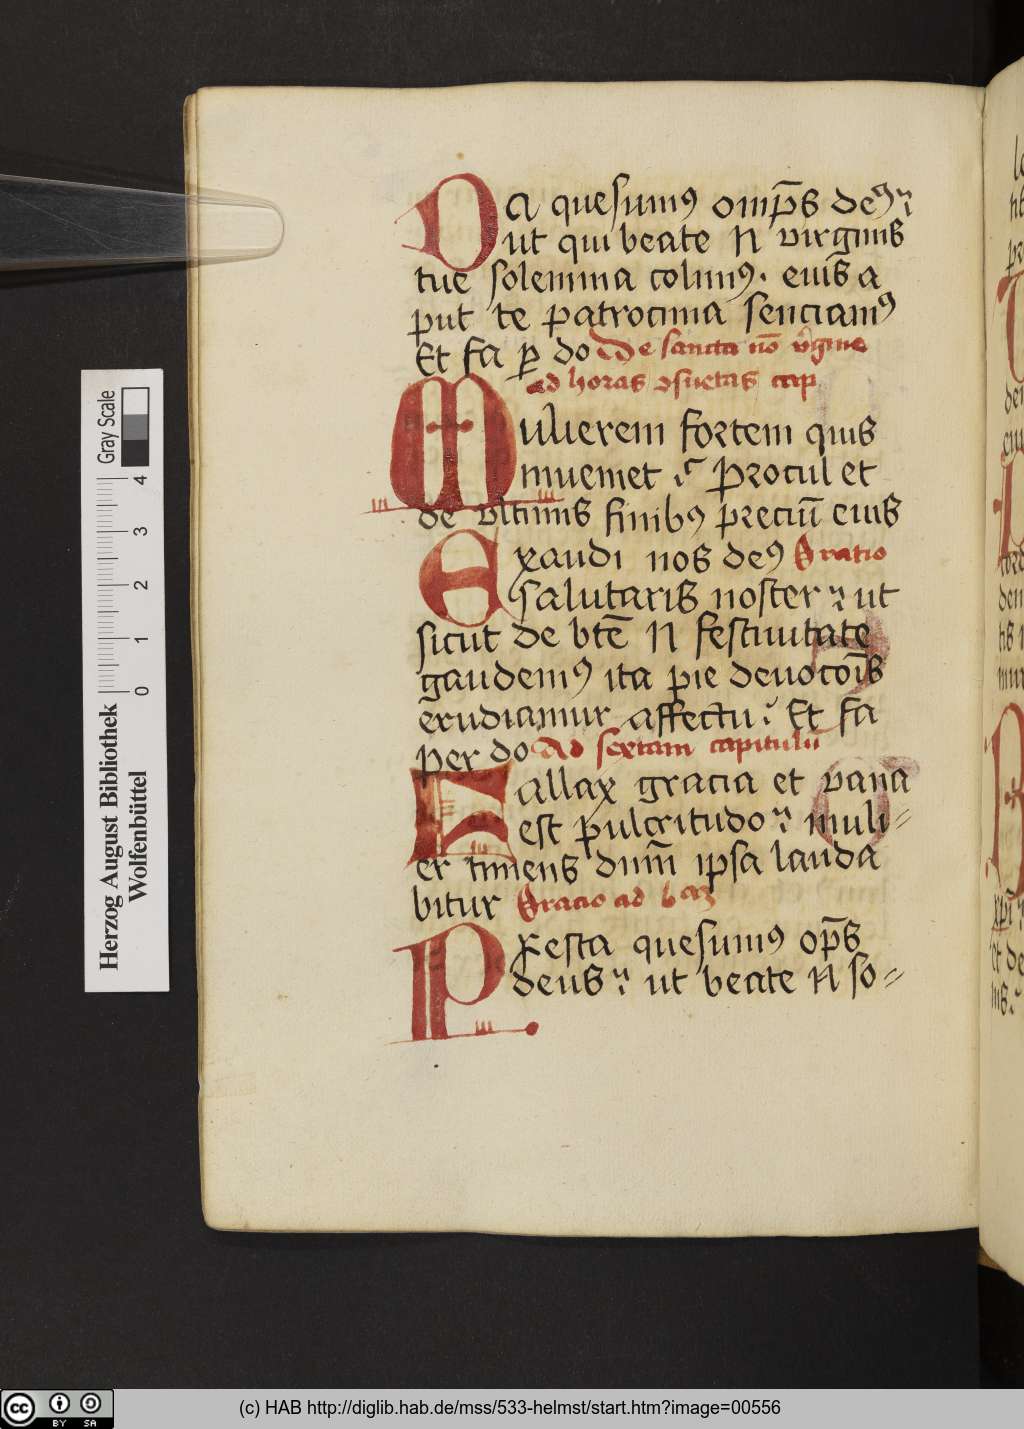 Da quesumꝰ omp̄s deꝰ
ut qui beate N virginis
tue solemnia colimꝰ. eius̄ a
put te patrocinia senciamꝰ
Et fa ꝑ do De sancta nō v̾gine
ad horas ꝯsuetas cap
Mulierem fortem quis
inueniet procul et
de vltimis finibꝰ preciū eius
Exaudi nos deꝰ Oratio
salutaris noster ut
sicut de btē N festiuitate
gaudemꝰ ita pie deuotoīs
erudiamur affectu Et fa
per do Ad sextam capitulū
Fallax gracia et vana
est pulcritudo muli=
er timens dnm̄ ipsa lauda
bitur Oracio ad
Presta quesumꝰ op̄s
deus ut beate N so=
le
Herzog August Bibliothek
Wolfenbüttel
Gray Scale
0 1 2 3 4
BY SA
(c) HAB http://diglib.hab.de/mss/533-helmst/start.htm?image=00556